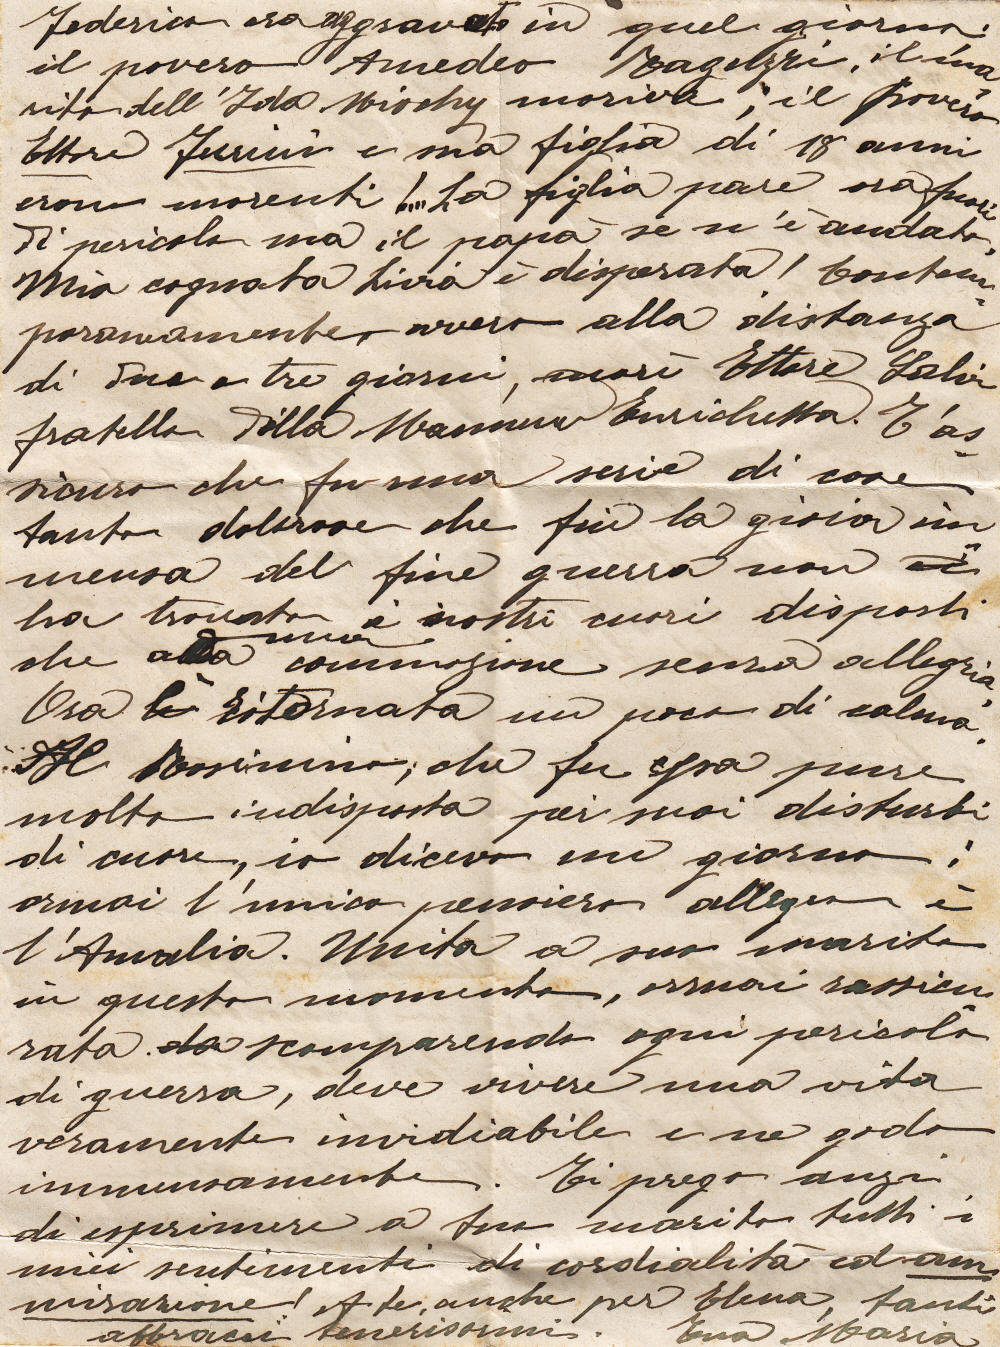 Federico era aggravato in quel giorno:
il povero Amedeo il ma
rito dell'Ida moriva; il povero
Ettore e sua figlia di 18 anni
erano morenti!... La figlia pare ora fuori
di pericolo ma il papà se n'è andato.
Mia cognata Livia è disperata! Contem-
poraneamente, ovvero alla distanza
di due o tre giorni, morì Ettore
fratello della Enrichetta. T'as-
sicuro che fu una serie di cose
tanto dolorose che fin la gioia im
mensa del fine guerra non ci
ha trovato i nostri cuori disposti
che a una commozione senza allegria.
Ora è ritornata un poco di calma.
che fu essa pure
molto indisposta per suoi disturbi
di cuore, io dicevo un giorno:
ormai l'unico pensiero allegro è
l'Amalia. Unita a suo marito
in questo momento, ormai rassicu
rata da scomparendo ogni pericolo
di guerra, deve vivere una vita
veramente invidiabile e ne godo
immensamente. Ti prego anzi
di esprimere a tuo marito tutti i
miei sentimenti di cordialità ed am
mirazione! A te, anche per Elena, tanti
abbracci tenerissimi. Tua Maria